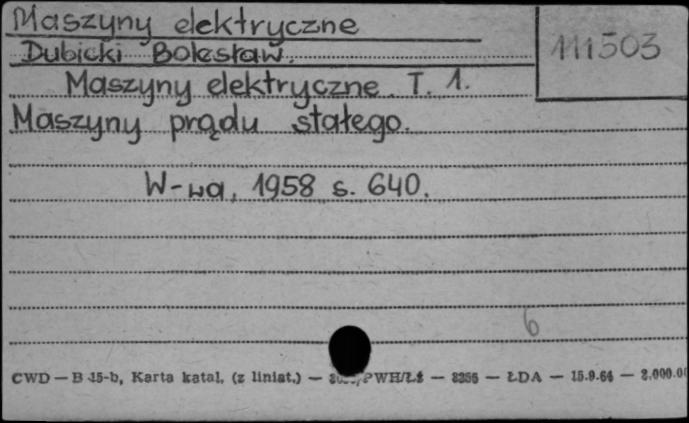 Maszyny elektryczne
111503
Dubicki Bolesław.
Maszyny elektryczne. T. 1.
Maszyny prądu stałego.
W-wa, 1958 s. 640.
6
CWD — B 15-b, Karta katal. (z liniat.) — PWH/Łż — 8256 — ŁDA — 15.9.64 —